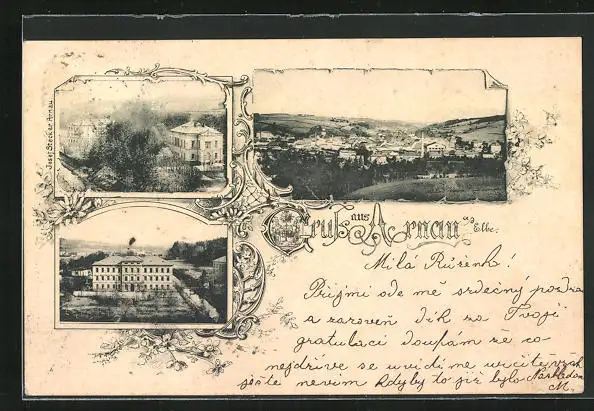 Josef Stecker Arnau.
Gruß aus Arnau a/d Elbe.
Milá Růženko!
Přijmi ode mě srdečný pozdra
a zároveň dík za Tvoji
gratulaci doufám že co
nejdříve se uvidíme určite
ještě nevim kdyby to již bylo
M.